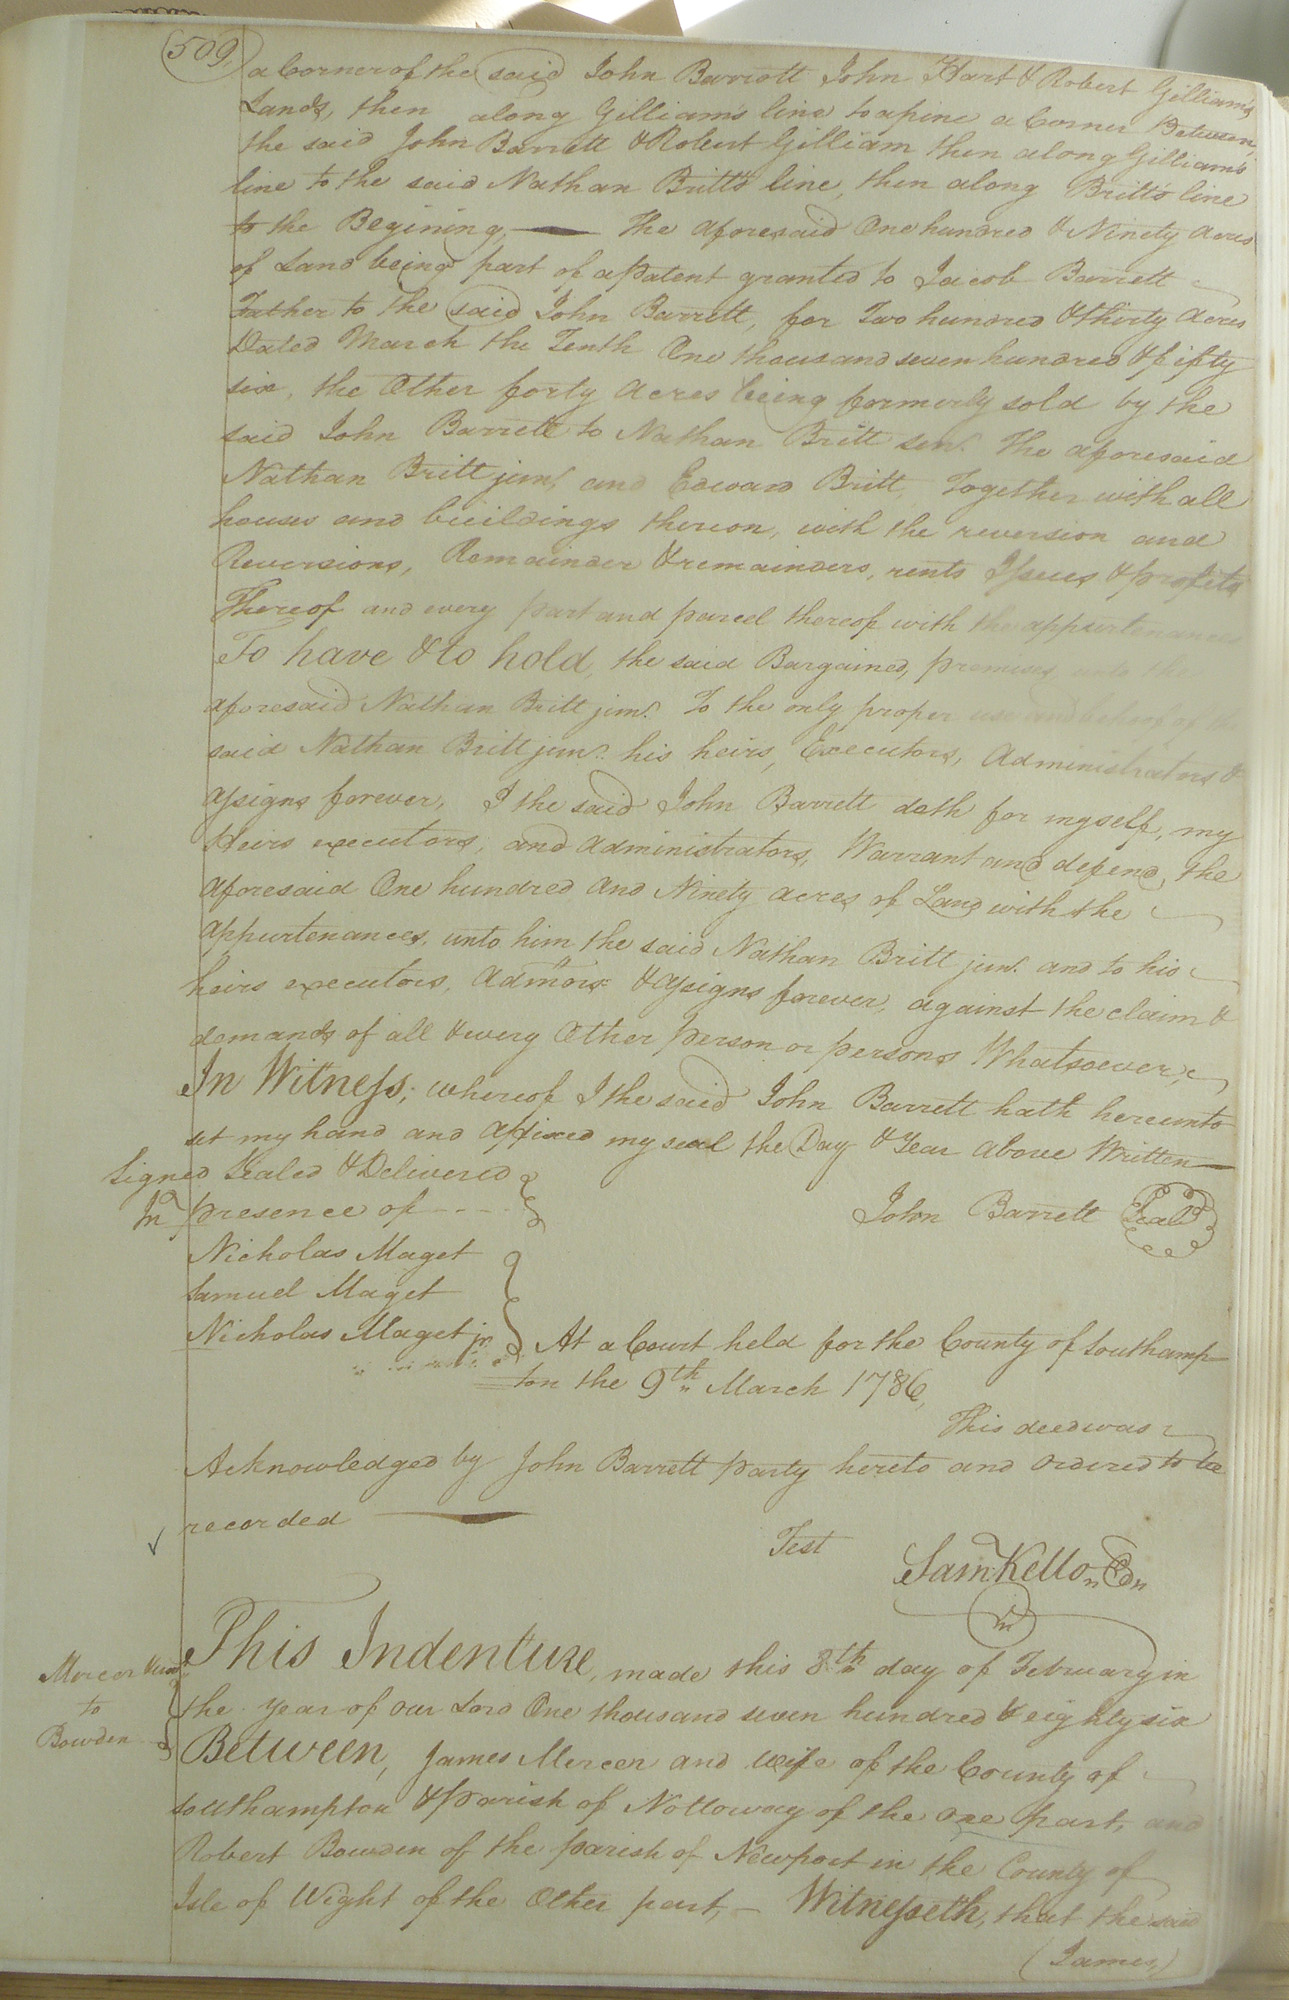 509,
a Corner of the said John Barrott John Hart & Robert Gilliam's
Lands, then along Gilliam's line to a pine a Corner Between,
the said John Barrett & Robert Gilliam then along Gilliam's
line to the said Nathan Britt's line, then along Britt's line
to the Begining, — The aforesaid One hundred & Ninety Acres
of Land being part of a Patent granted to Jacob Barrett
Father to the said John Barrett, for Two hundred & thirty Acres
Dated March the Tenth One thousand seven hundred & fifty
six, the Other forty Acres being formerly sold by the
said John Barrett to Nathan Britt senr. The aforesaid
Nathan Britt junr. and Edward Britt, Together with all
houses and buildings thereon, with the reversion and
Reversions, Remainder & remainders, rents Issues & profits
Thereof and every part and parcel thereof with the appurtenances
To have & to hold, the said Bargained, premises unto the
aforesaid Nathan Britt junr. To the only proper use and behoof of the
said Nathan Britt junr. his heirs, Executors, Administrators &
assigns forever, I the said John Barrett doth for myself, my
Heirs executors, and Administrators, Warrant and defend, the
aforesaid One hundred and Ninety acres of Land with the
appurtenances, unto him the said Nathan Britt junr. and to his
heirs executors, Admors & assigns forever, against the claim &
demands of all & every Other person or persons Whatsoever,
In Witness, whereof I the said John Barrett hath hereunto
set my hand and affixed my seal the Day & Year above Written
Signed Sealed & Delivered
In presence of ----
John Barrett Seal
Nicholas Maget
Samuel Maget
Nicholas Maget jr
At a Court held for the County of Southamp-
ton the 9th March 1786,
This deed was
Acknowledged by John Barrett party hereto and Ordered to be
recorded
Test
Sam Kello
This Indenture, made this 8th day of February in
the year of our Lord One thousand seven hundred & eighty six
Mercer
to
Bowden
Between, James Mercer and Wife of the County of
Southampton & Parish of Nottoway of the one part, and
Robert Bowden of the parish of Newport in the County of
Isle of Wight of the Other part, — Witnesseth, that the said
(James,)